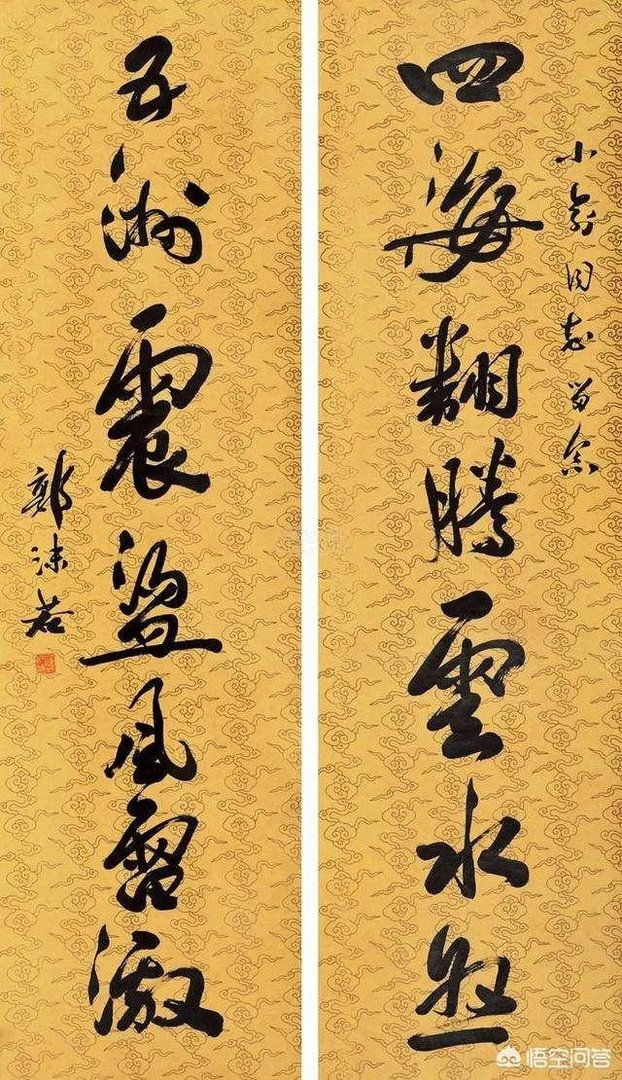 小 同志留念
四海翻騰雲水怒
五洲震盪風雷激
郭沫若
悟空问答